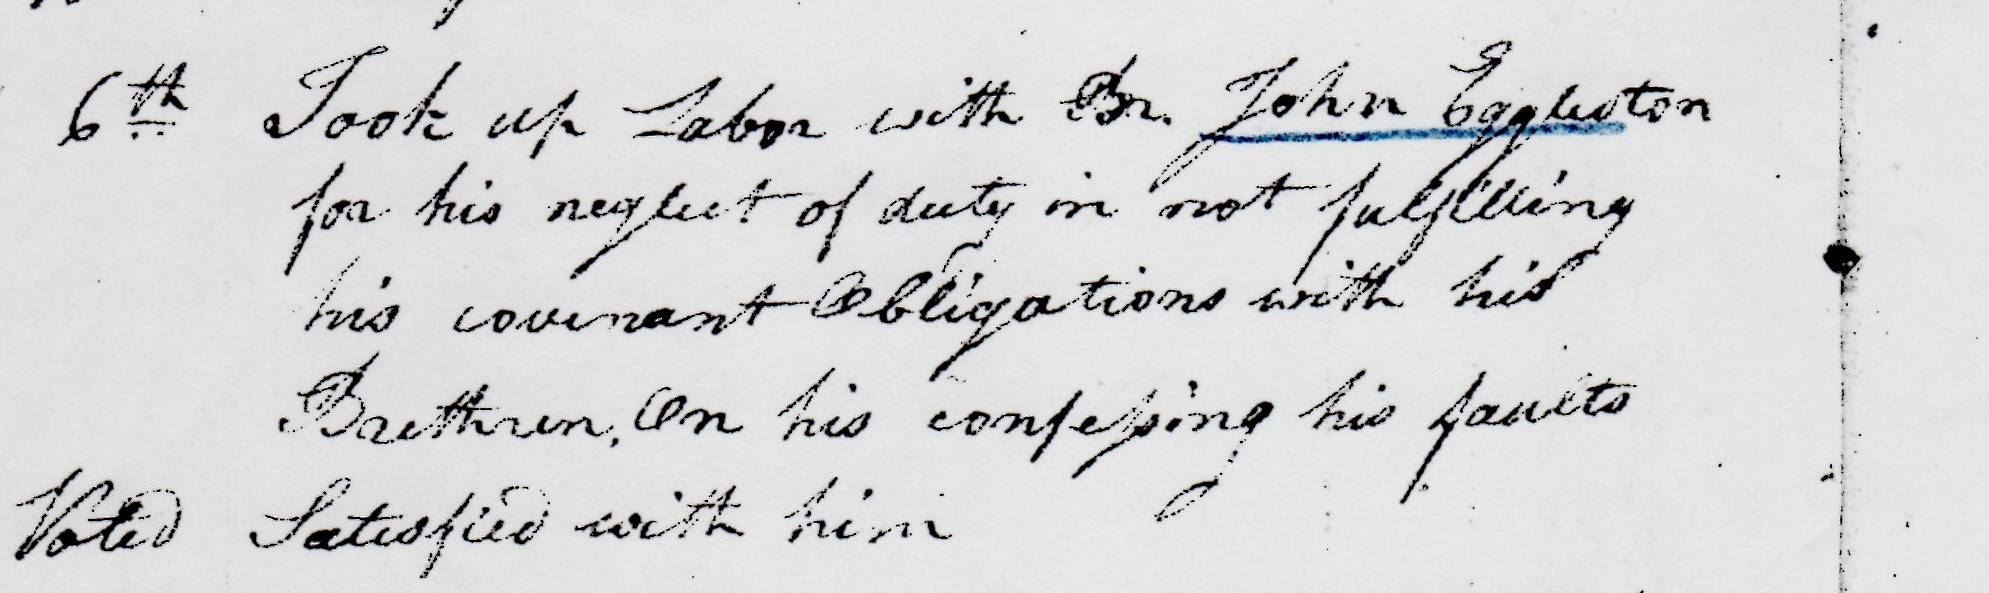 6th Took up Labor with Br. John Eggleston
for his neglect of duty in not fulfilling
his covenant Obligations with his
Brethren, On his confessing his faults
Voted Satisfied with him